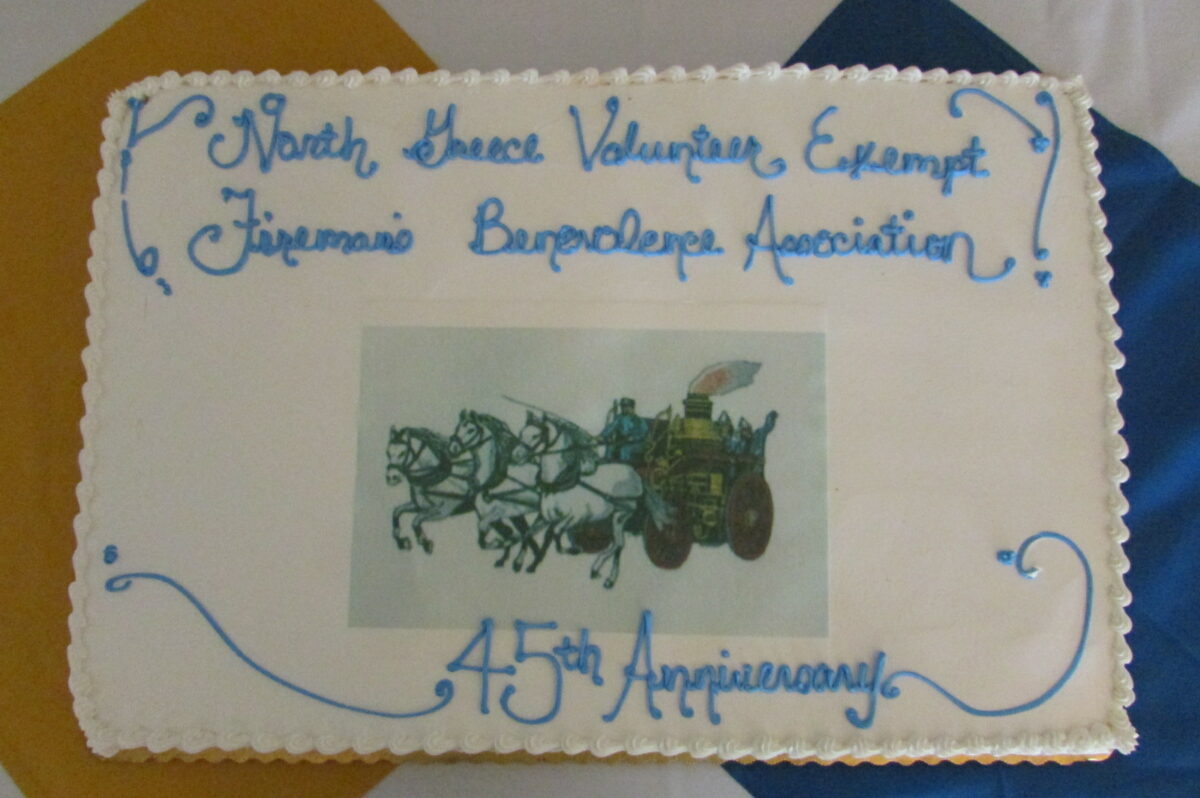 North Greece Volunteer Exempt
Fireman's Benevolence Association
45th Anniversary